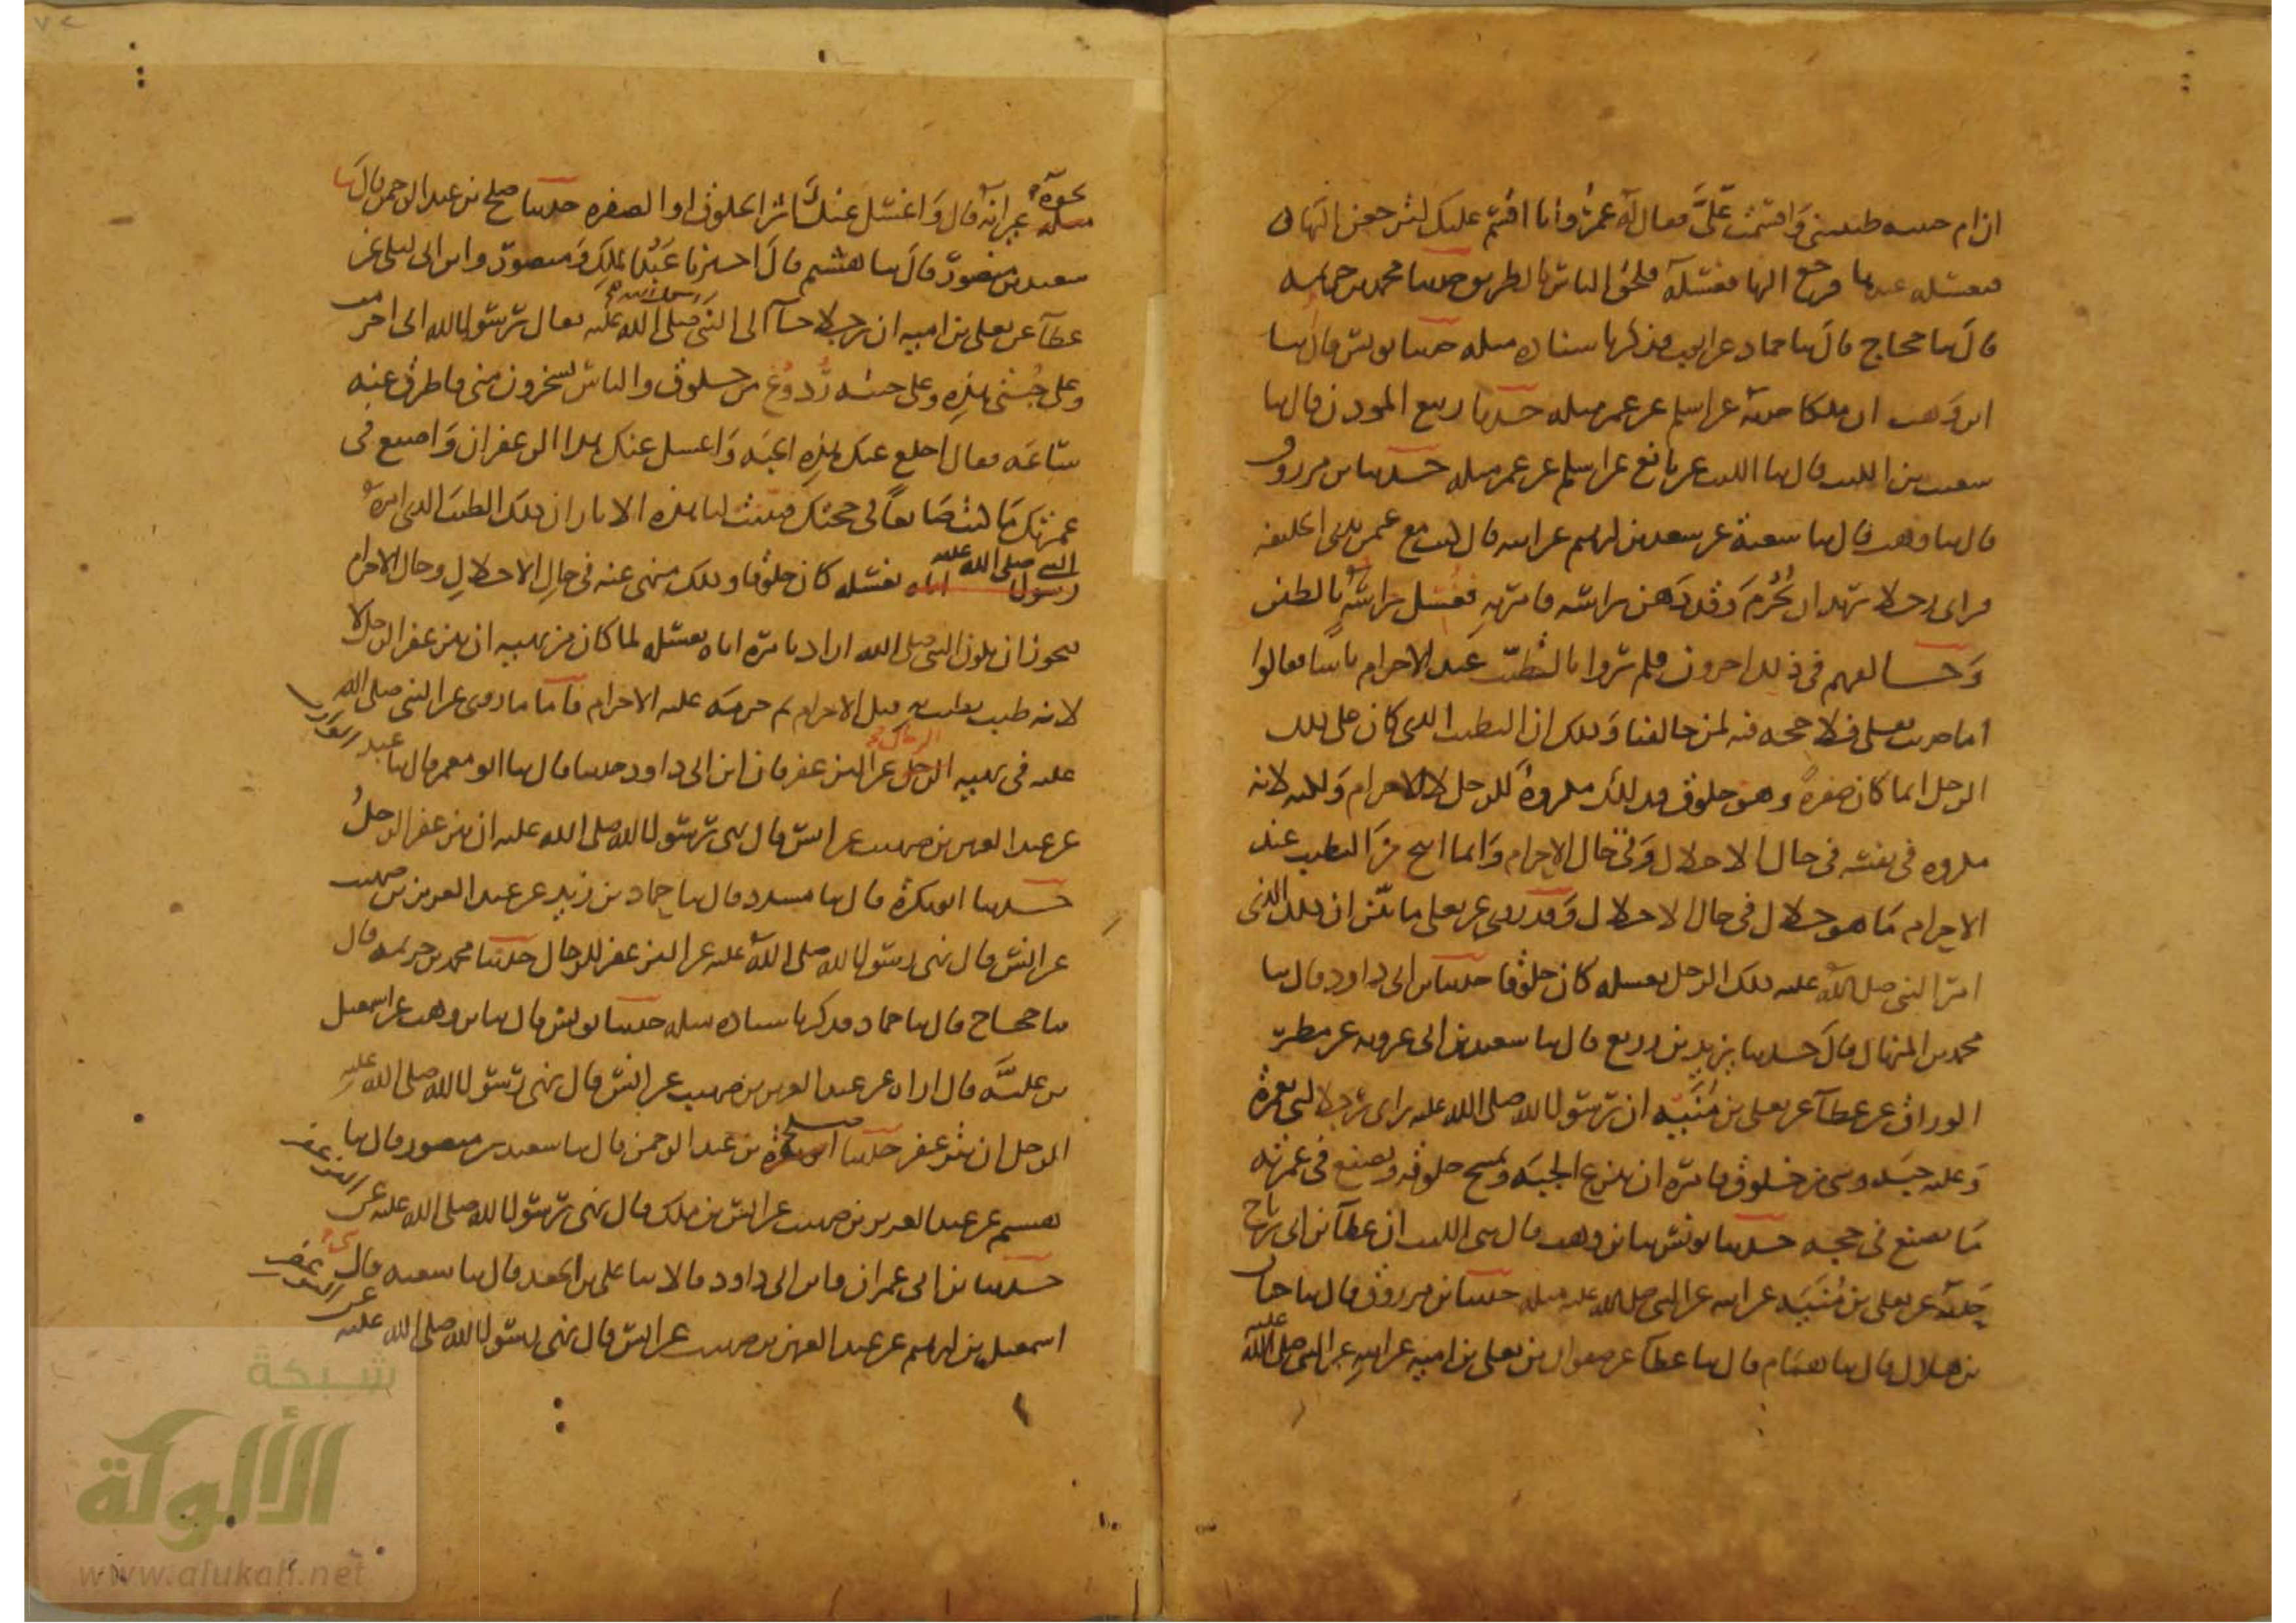 ان ام حبيبه طيبتني واقسمت علي فقال له عمر وانا اقسم عليك لترجعن اليها
فتغسله عنك فرجع اليها فغسلته فلحق الناس بالطريق حدثنا محمد بن خزيمه
قال ثنا حجاج قال ثنا حماد عن ايوب فذكر باسناده مثله حدثنا يونس قال ثنا
ابن وهب ان ملكا حدثه عن اسلم عن عمر مثله حدثنا ربيع الموذن قال ثنا
شعيب بن الليث قال ثنا الليث عن نافع عن اسلم عن عمر مثله حدثنا بن مرزوق
قال ثنا وهب قال ثنا شعبة عن سعد بن ابرهيم عن ابيه قال كنت مع عمر بذي الحليفه
فراى رجلا يريد ان يحرم وقد دهن راسه فامر به فغسل راسه بالطين
وخالفهم في ذلك اخرون فلم يروا بالتطيب عند الاحرام باسا فقالوا
اما حديث يعلى فلا حجه فيه لمن خالفنا وذلك ان التطيب الذي كان على ذلك
الرجل انما كان صفرة وهو خلوق فذلك مكروه للرجل لا للاحرام ولكنه لانه
مكروه في نفسه في حال الاحلال وفي حال الاحرام وانما ابيح من التطيب عند
الاحرام ما هو حلال في حال الاحلال وقد روى عن يعلى ما بين ان ذلك الذي
امر النبي صلى الله عليه ذلك الرجل بغسله كان خلوقا حدثنا بن ابي داود قال ثنا
محمد بن المنهال قال حدثنا يزيد بن زريع قال ثنا سعيد بن ابي عروبه عن مطر
الوراق عن عطآ عن يعلى بن منيه ان رسول الله صلى الله عليه راى رجلا لبى بعمرة
وعليه جبه وشى من خلوق فامره ان ينزع الجبه ويمسح خلوقه ويصنع في عمرته
ما يصنع في حجه حدثنا يونس ثنا بن وهب قال ثنى الليث ان عطآ بن ابي رباح
حدثه عن يعلى بن منيه عن ابيه عن النبي صلى الله عليه مثله حدثنا بن مرزوق قال ثنا حبان
بن هلال قال ثنا همام قال ثنا عطآ عن صفوان بن يعلى بن اميه عن ابيه عن النبي صلى الله عليه
نحوه غير انه قال واغسل عنك اثر الخلوق او الصفره حدثنا صلح بن عبد الرحمن قال ثنا
سعيد بن منصور قال ثنا هشيم قال اخبرنا عبد الملك ومنصور وابن ابي ليلى عن
عطآ عن يعلى بن اميه ان رجلا جآ الى النبي صلى الله عليه فقال يرسول الله اني احرمت
وعلي جبتي هذه وعلى جبته ردوغ من خلوق والناس يسخرون مني فاطرق عنه
ساعه فقال اخلع عنك هذه الجبه واغسل عنك هذا الزعفران واصنع في
عمرتك ما كنت صانعا في حجتك فبينت لنا هذه الاثار ان ذلك الطيب الذي امره
النبي صلى الله عليه بغسله كان خلوقا وذلك منهى عنه في حال الاحلال وحال الاحرام
فيجوز ان يكون النبي صلى الله اراد بامره اياه بغسله لما كان من نهيه ان يتزعفر الرجل لا
لانه طيب تطيب به قبل الاحرام ثم حرمه عليه الاحرام فاما ما روى عن النبي صلى الله
عليه في نهيه الرجل عن التزعفر فان ابن ابي داود حدثنا قال ثنا ابو معمر قال ثنا عبد الوارث
عن عبد العزيز بن صهيب عن انس قال نهى رسول الله صلى الله عليه ان يتزعفر الرجل
حدثنا ابو بكرة قال ثنا مسدد قال ثنا حماد بن زيد عن عبد العزيز بن صهيب
عن انس قال نهى رسول الله صلى الله عليه عن التزعفر للرجال حدثنا محمد بن خزيمه قال
ثنا حجاج قال ثنا حماد فذكر باسناده مثله حدثنا يونس قال ثنا بن وهب عن اسمعيل
بن عليه قال اراه عن عبد العزيز بن صهيب عن انس قال نهى رسول الله صلى الله عليه
الرجل ان يتزعفر حدثنا صلح بن عبد الرحمن قال ثنا سعيد بن منصور قال ثنا
هشيم عن عبد العزيز بن صهيب عن انس بن ملك قال نهى رسول الله صلى الله عليه عن التزعفر
حدثنا بن ابي عمران وابن ابي داود قالا ثنا علي بن الجعد قال ثنا شعبه قال
اسمعيل بن ابرهيم عن عبد العزيز بن صهيب عن انس قال نهى رسول الله صلى الله عليه عن التزعفر
شبكة
الألوكة
www.alukah.net